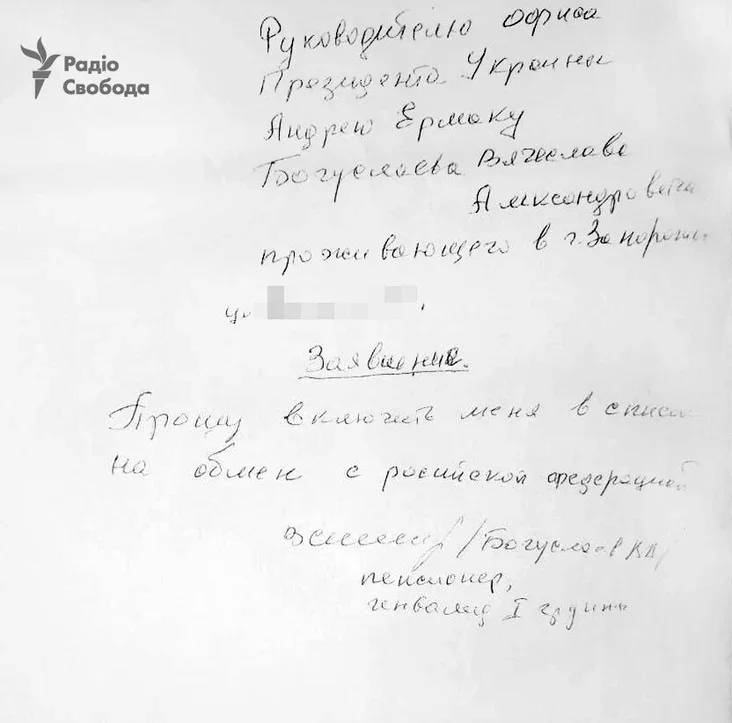 Радіо
Свобода
Руководителю офиса
Президента Украины
Андрею Ермаку
Богуслаева Вячеслава
Александровича
проживающего в г. Запорожье
ул
Заявление.
Прошу включить меня в список
на обмен с росийской федерацией
/Богуслаев
пенсионер,
инвалид I группы